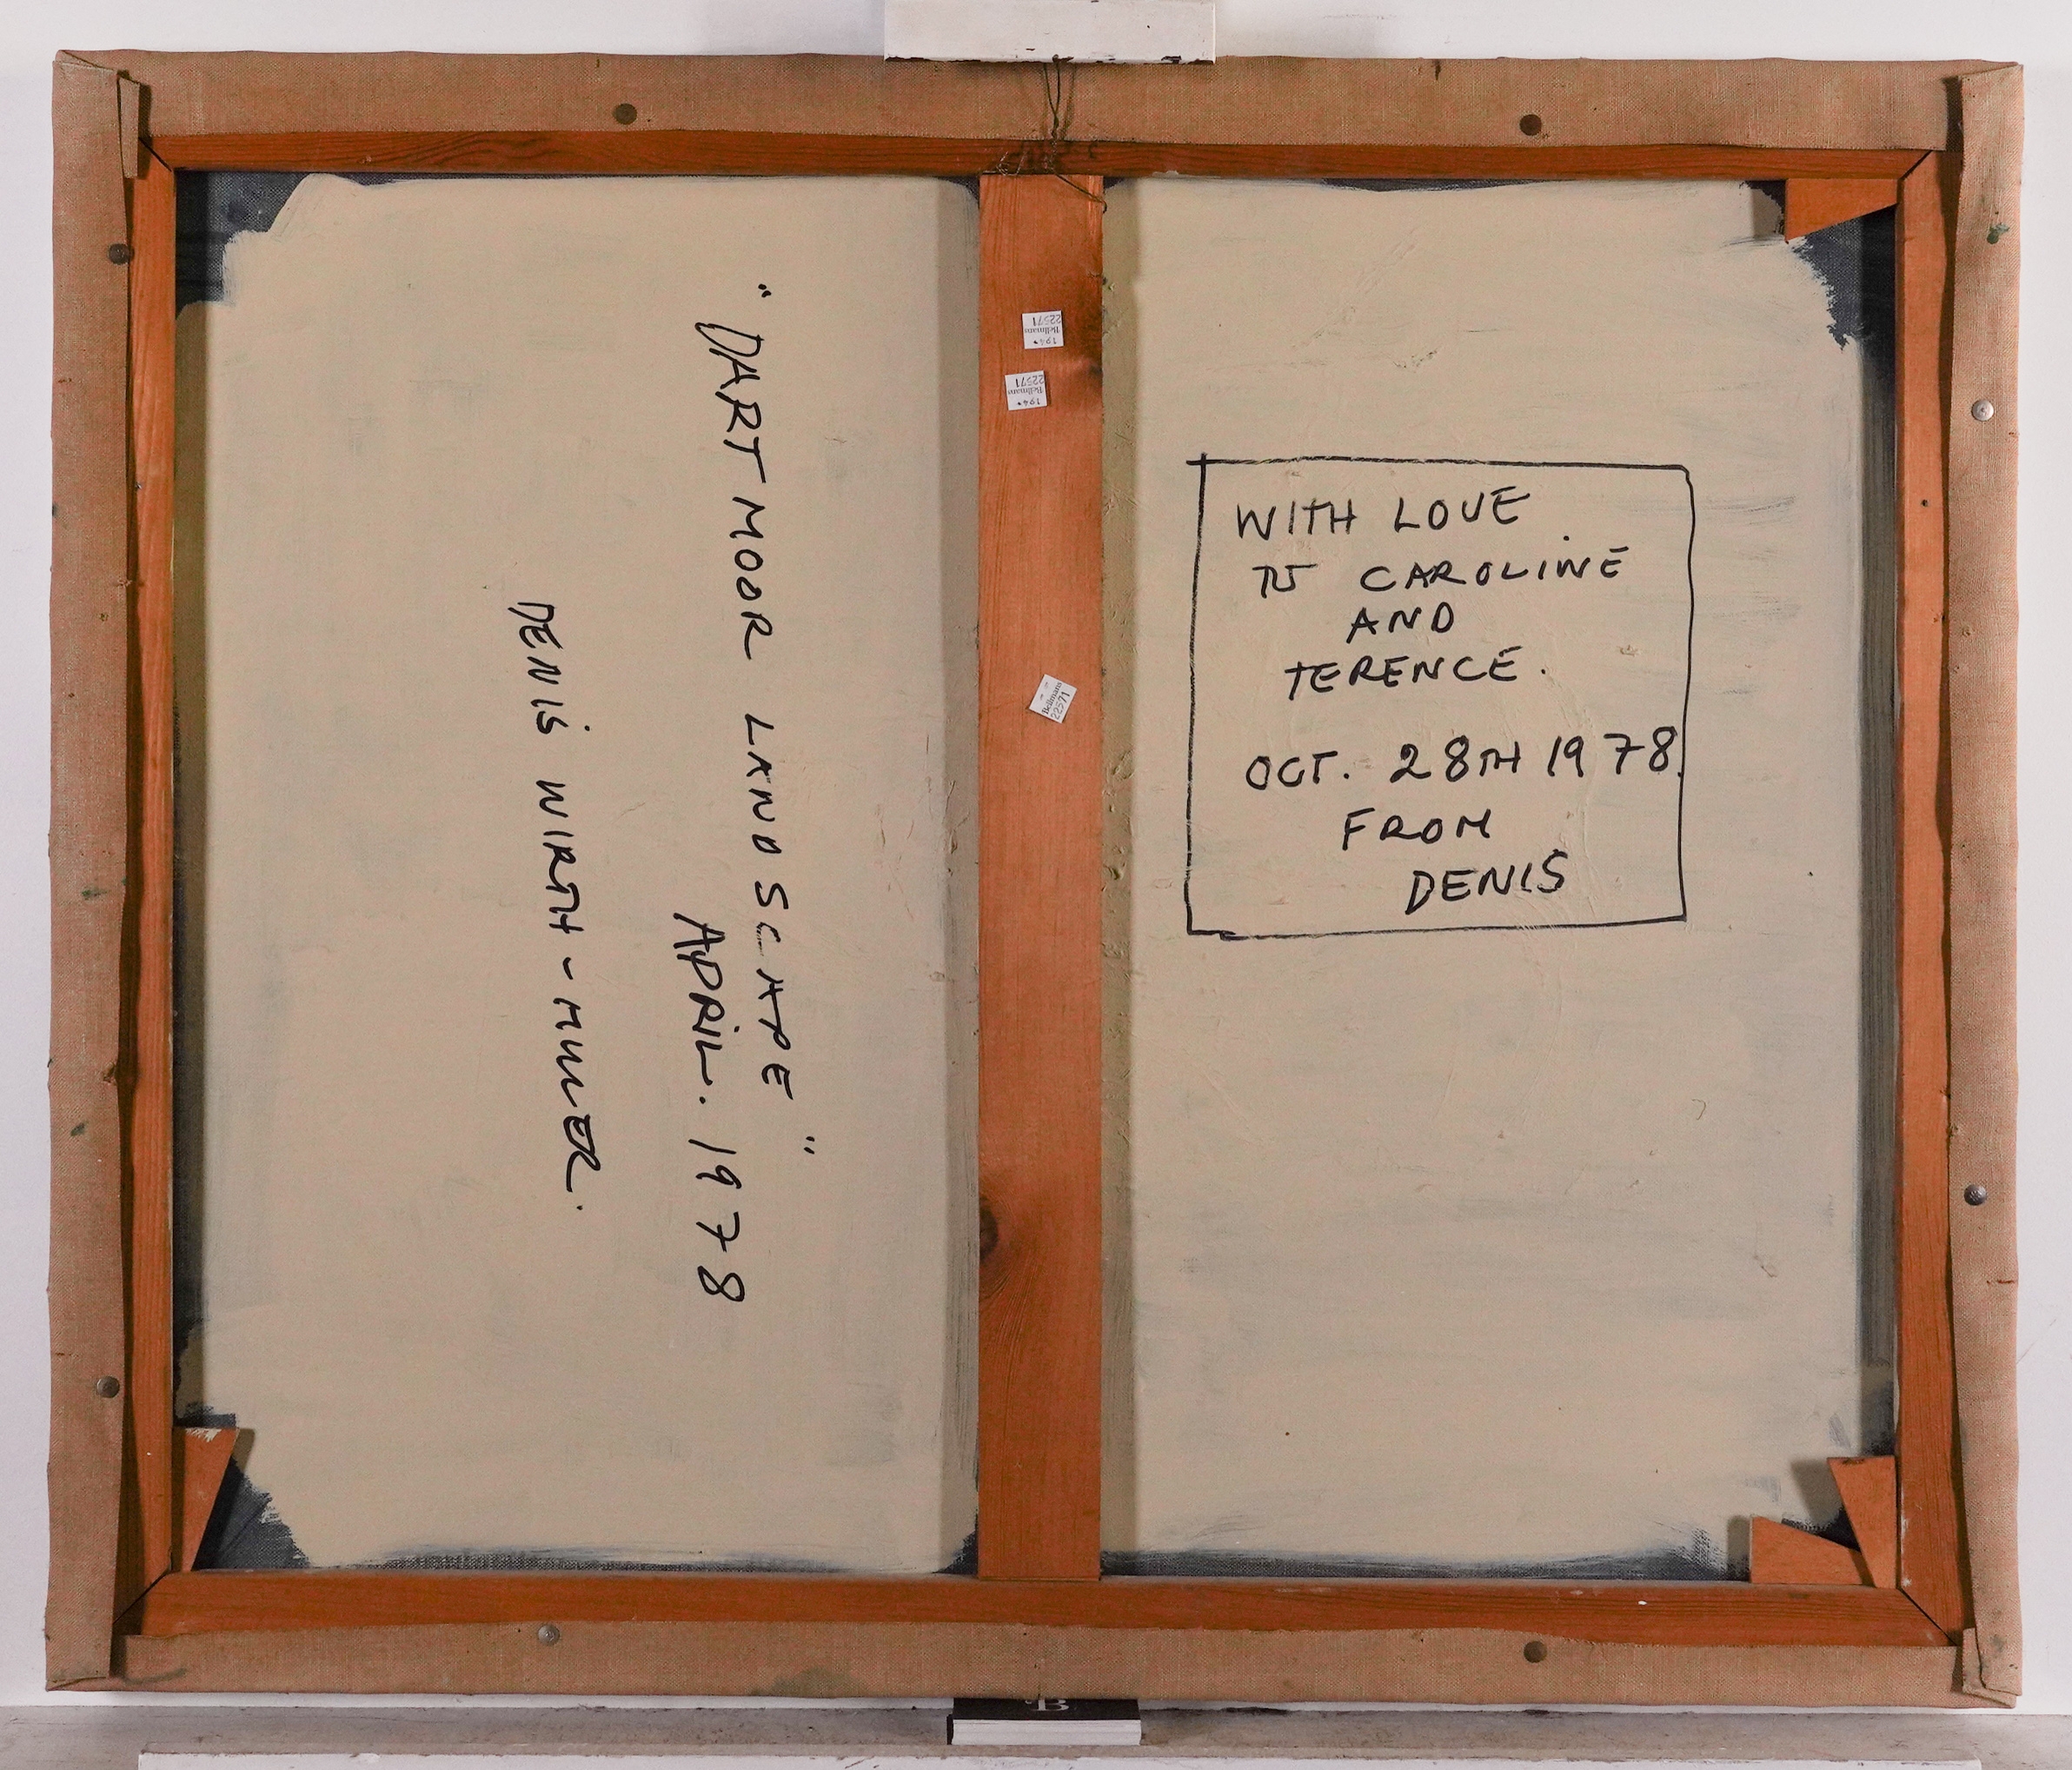 " DARTMOOR LANDSCAPE "
APRIL. 1978
DENIS WIRTH-MILLER.
WITH LOVE
TO CAROLINE
AND
TERENCE.
OCT. 28TH 1978.
FROM
DENIS
194*
Bellmans
22571
194*
Bellmans
22571
Bellmans
22571
B